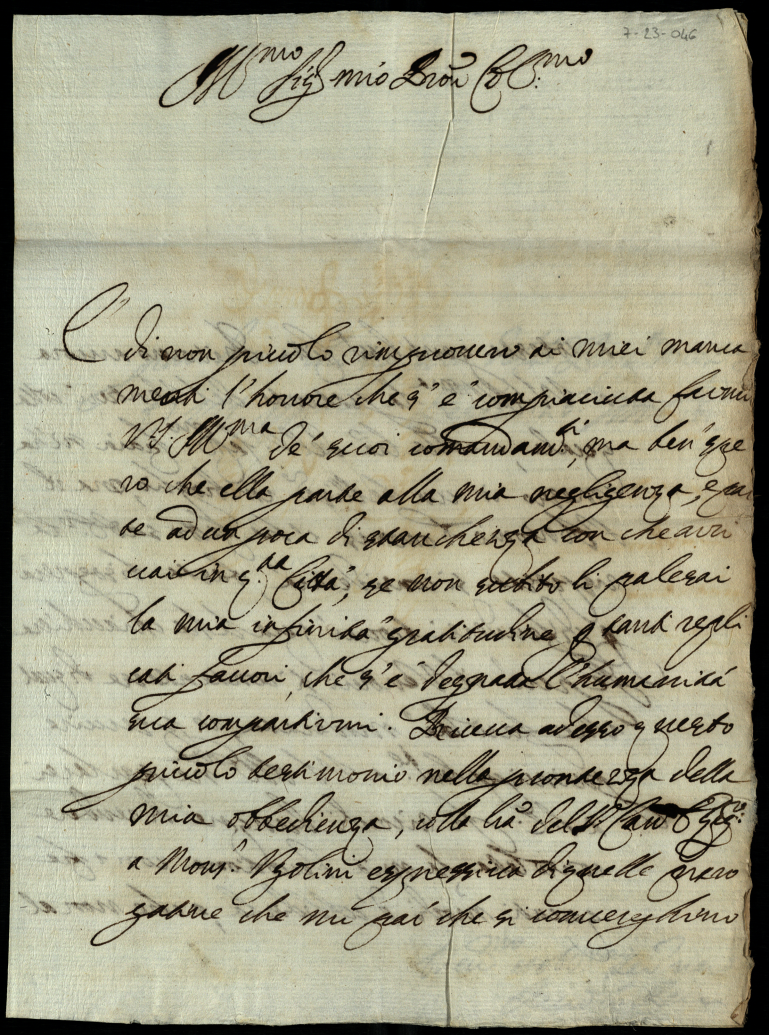 7-23-046
Ill.mo Sig.r mio Pron Col.mo
E' di non piccolo rimprovero ai miei manca
menti l'honore che s'è compiaciuta farmi
V.S. Ill.ma de' suoi comandam.ti, ma ben spe
ro che ella parte alla mia negligenza, e par
te ad un poca di stanchezza con che arri
vai in q.ta Città, se non subito li palesai
la mia infinita gratitudine p tanti repli
cati favori, che s'è degnata l'humanità
sua compartirmi. Riceva adesso questo
piccolo testimonio nella prontezza della
mia obbedienza, colla lra del S.r Cav.
a Mons.r Ugolini espressiva di quelle prero
gative che mi par che si convenghino